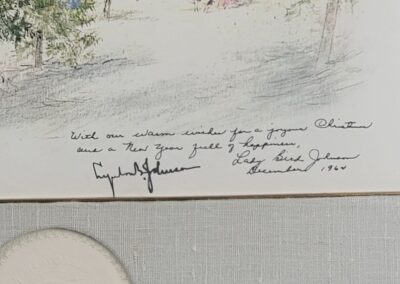 With our warm wishes for a joyous Christmas
and a New Year full of happiness,
Lyndon B. Johnson
Lady Bird Johnson
December 1964